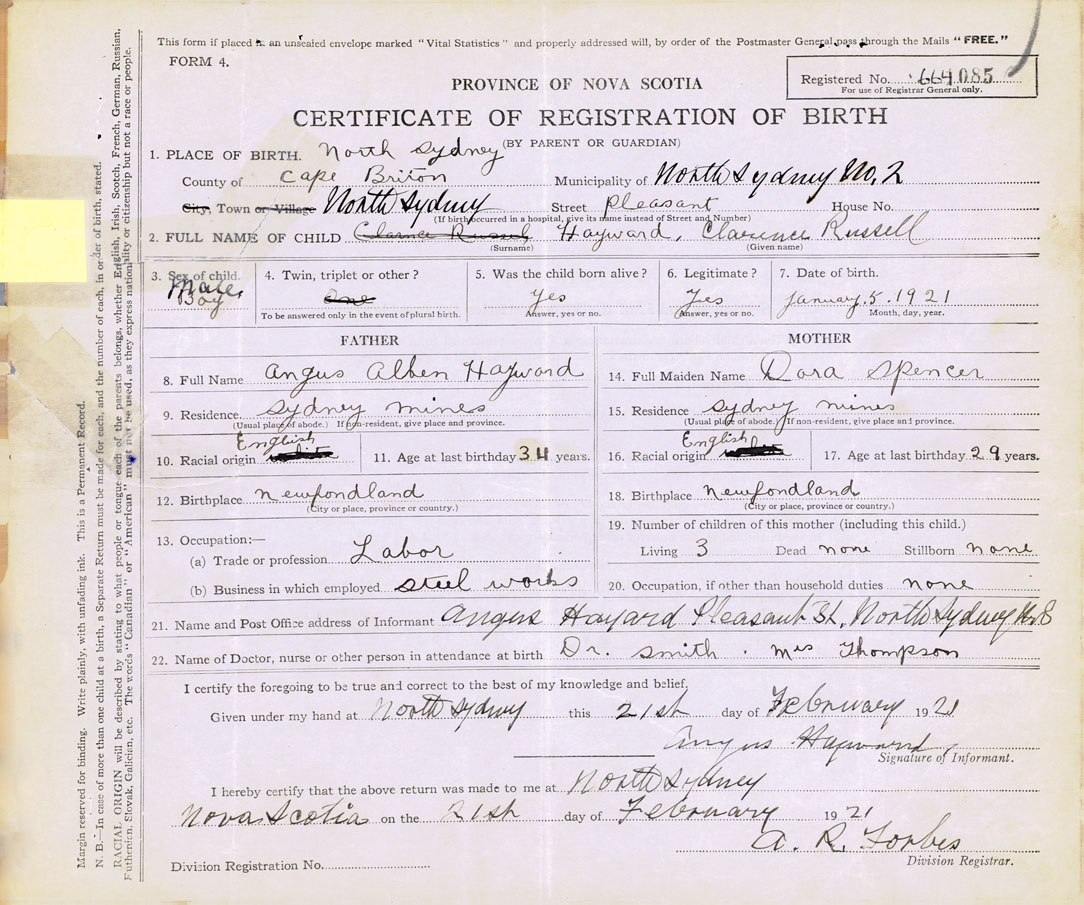 This form if placed in an unsealed envelope marked "Vital Statistics" and properly addressed will, by order of the Postmaster General pass through the Mails "FREE."
FORM 4.
Registered No. 664085
For use of Registrar General only.
PROVINCE OF NOVA SCOTIA
CERTIFICATE OF REGISTRATION OF BIRTH
(BY PARENT OR GUARDIAN)
1. PLACE OF BIRTH. North Sydney
County of Cape Briton Municipality of North Sydney No. 2
City, Town or Village North Sydney Street Pleasant House No.
(If birth occurred in a hospital, give its name instead of Street and Number)
2. FULL NAME OF CHILD Clarnce Russel Hayward, Clarence Russell
(Surname) (Given name)
3. Sex of child. Male, Boy
4. Twin, triplet or other? One
To be answered only in the event of plural birth.
5. Was the child born alive? Yes
Answer, yes or no.
6. Legitimate? Yes
Answer, yes or no.
7. Date of birth. January. 5. 1921
Month, day, year.
FATHER
8. Full Name Angus Alben Hayword
9. Residence. Sydney mines
(Usual place of abode.) If non-resident, give place and province.
10. Racial origin English
11. Age at last birthday 34 years.
12. Birthplace Newfondland
(City or place, province or country.)
13. Occupation:—
(a) Trade or profession Labor
(b) Business in which employed steel works
MOTHER
14. Full Maiden Name Dora Spencer
15. Residence Sydney mines
(Usual place of abode.) If non-resident, give place and province.
16. Racial origin English
17. Age at last birthday 29 years.
18. Birthplace Newfondland
(City or place, province or country.)
19. Number of children of this mother (including this child.)
Living 3 Dead none Stillborn none
20. Occupation, if other than household duties none
21. Name and Post Office address of Informant Angus Hayard Pleasant St, North Sydney N.S
22. Name of Doctor, nurse or other person in attendance at birth Dr. Smith. Mrs Thompson
I certify the foregoing to be true and correct to the best of my knowledge and belief.
Given under my hand at North Sydney this 21st day of February 1921
Angus Hayward
Signature of Informant.
I hereby certify that the above return was made to me at North Sydney
Nova Scotia on the 21st day of February 1921
A. R. Forbes
Division Registrar.
Division Registration No.
Margin reserved for binding. Write plainly, with unfading ink. This is a Permanent Record.
N. B.—In case of more than one child at a birth, a Separate Return must be made for each, and the number of each, in order of birth, stated.
RACIAL ORIGIN will be described by stating to what people or tongue each of the parents belongs, whether English, Irish, Scotch, French, German, Russian,
Ruthenian, Slovak, Galician, etc. The words "Canadian" or "American" must not be used, as they express nationality or citizenship but not a race or people.